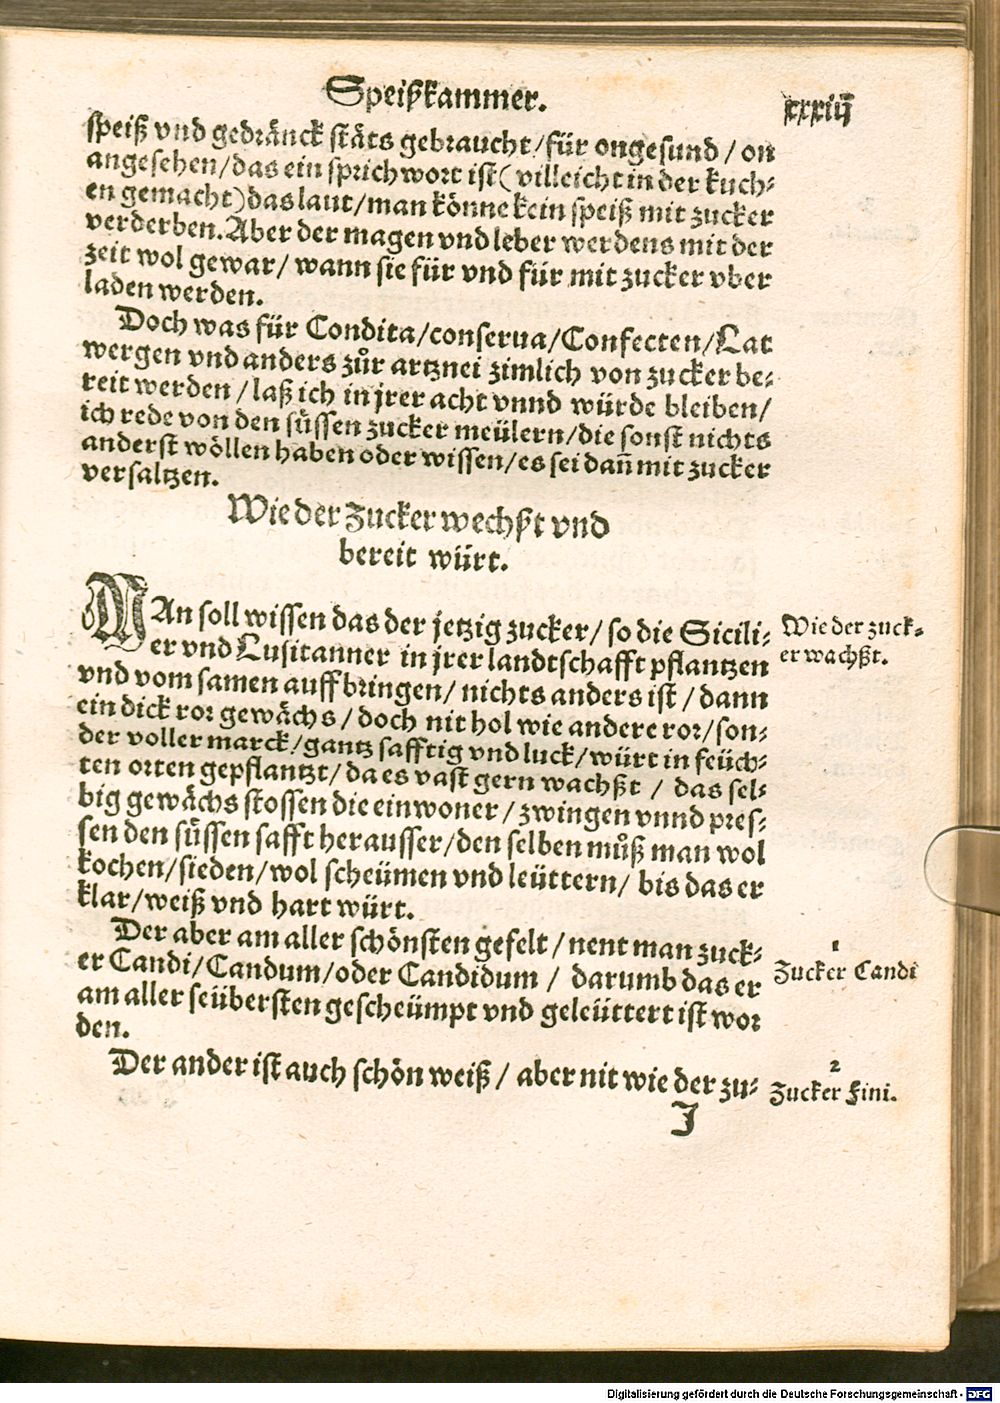 Speißkammer.
xxxiij
speiß vnd gedränck stäts gebraucht/für ongesund/on
angesehen/das ein sprichwort ist(villeicht in der kuch⸗
en gemacht)das laut/man könne kein speiß mit zucker
verderben. Aber der magen vnd leber werdens mit der
zeit wol gewar/wann sie für vnd für mit zucker vber
laden werden.
Doch was für Condita/conserua/Confecten/Lat
wergen vnd anders zůr artznei zimlich von zucker be⸗
reit werden/laß ich in jrer acht vnnd würde bleiben/
ich rede von den süssen zucker meülern/die sonst nichts
anderst wöllen haben oder wissen/es sei dañ mit zucker
versaltzen.
Wie der Zucker wechßt vnd
bereit würt.
MAn soll wissen das der jetzig zucker/so die Sicili⸗
er vnd Lusitanner in jrer landtschafft pflantzen
vnd vom samen auffbringen/nichts anders ist/dann
ein dick ror gewächs/doch nit hol wie andere ror/son⸗
der voller marck/gantz safftig vnd luck/würt in feüch⸗
ten orten gepflantzt/da es vast gern wachßt/das sel⸗
big gewächs stossen die einwoner/zwingen vnnd pres⸗
sen den süssen safft herausser/den selben můß man wol
kochen/sieden/wol scheümen vnd leüttern/bis das er
klar/weiß vnd hart würt.
Wie der zuck⸗
er wachßt.
Der aber am aller schönsten gefelt/nent man zuck⸗
er Candi/Candum/oder Candidum/darumb das er
am aller seübersten gescheümpt vnd geleüttert ist wor
den.
1
Zucker Candi
Der ander ist auch schön weiß/aber nit wie der zu⸗
2
Zucker Fini.
J
Digitalisierung gefördert durch die Deutsche Forschungsgemeinschaft - DFG